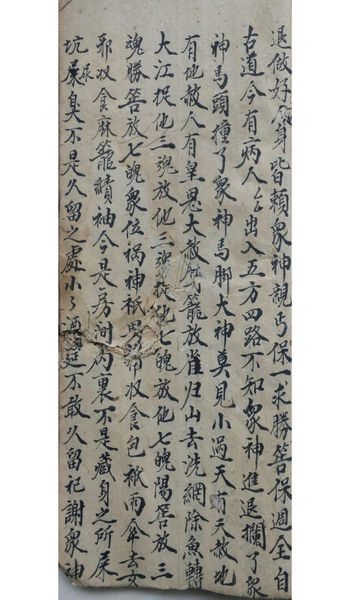 退做好人身皆頼衆神親与保一求勝筶保週全自
古道今有病人厶厶出入五方四路不知衆神進退攔了衆
神馬頭撞了衆神馬脚大神莫見小過天有天赦地
有地赦人有皇恩大赦籠放雀归山去洗網除魚轉
大江捉他三魂放他三魂捉他七魄放他七魄陽筶放三
魂勝筶放七魄衆位祸神祇邪収舍包袱雨傘去文
邪収舍麻籃績袖今是房间内裏不是藏身之所屎
坑尿臭不是久留之處小小酒筵不敢久留祀謝衆神